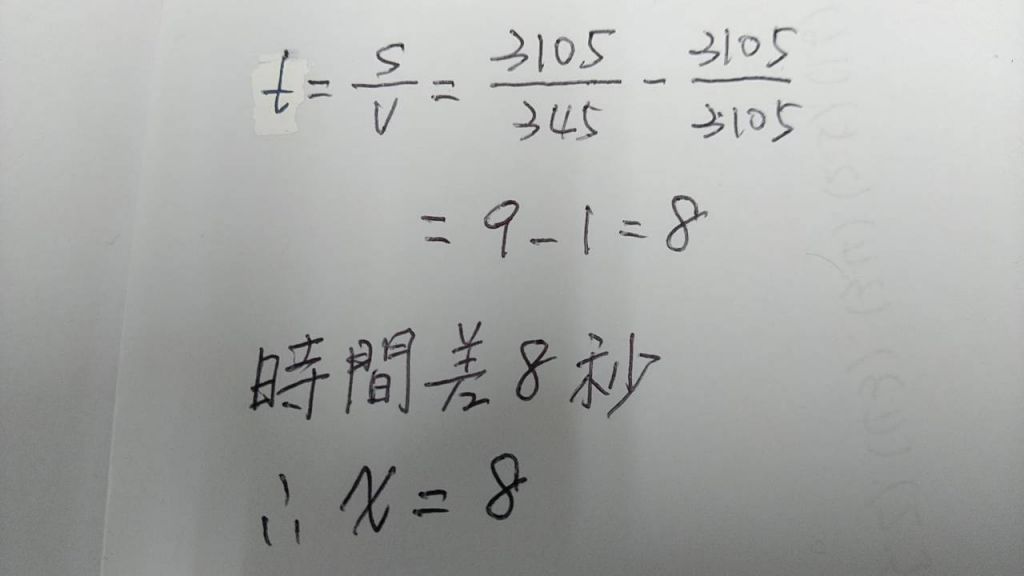 t = S/V = 3105/345 - 3105/3105
= 9 - 1 = 8
時間差8秒
∴ x = 8